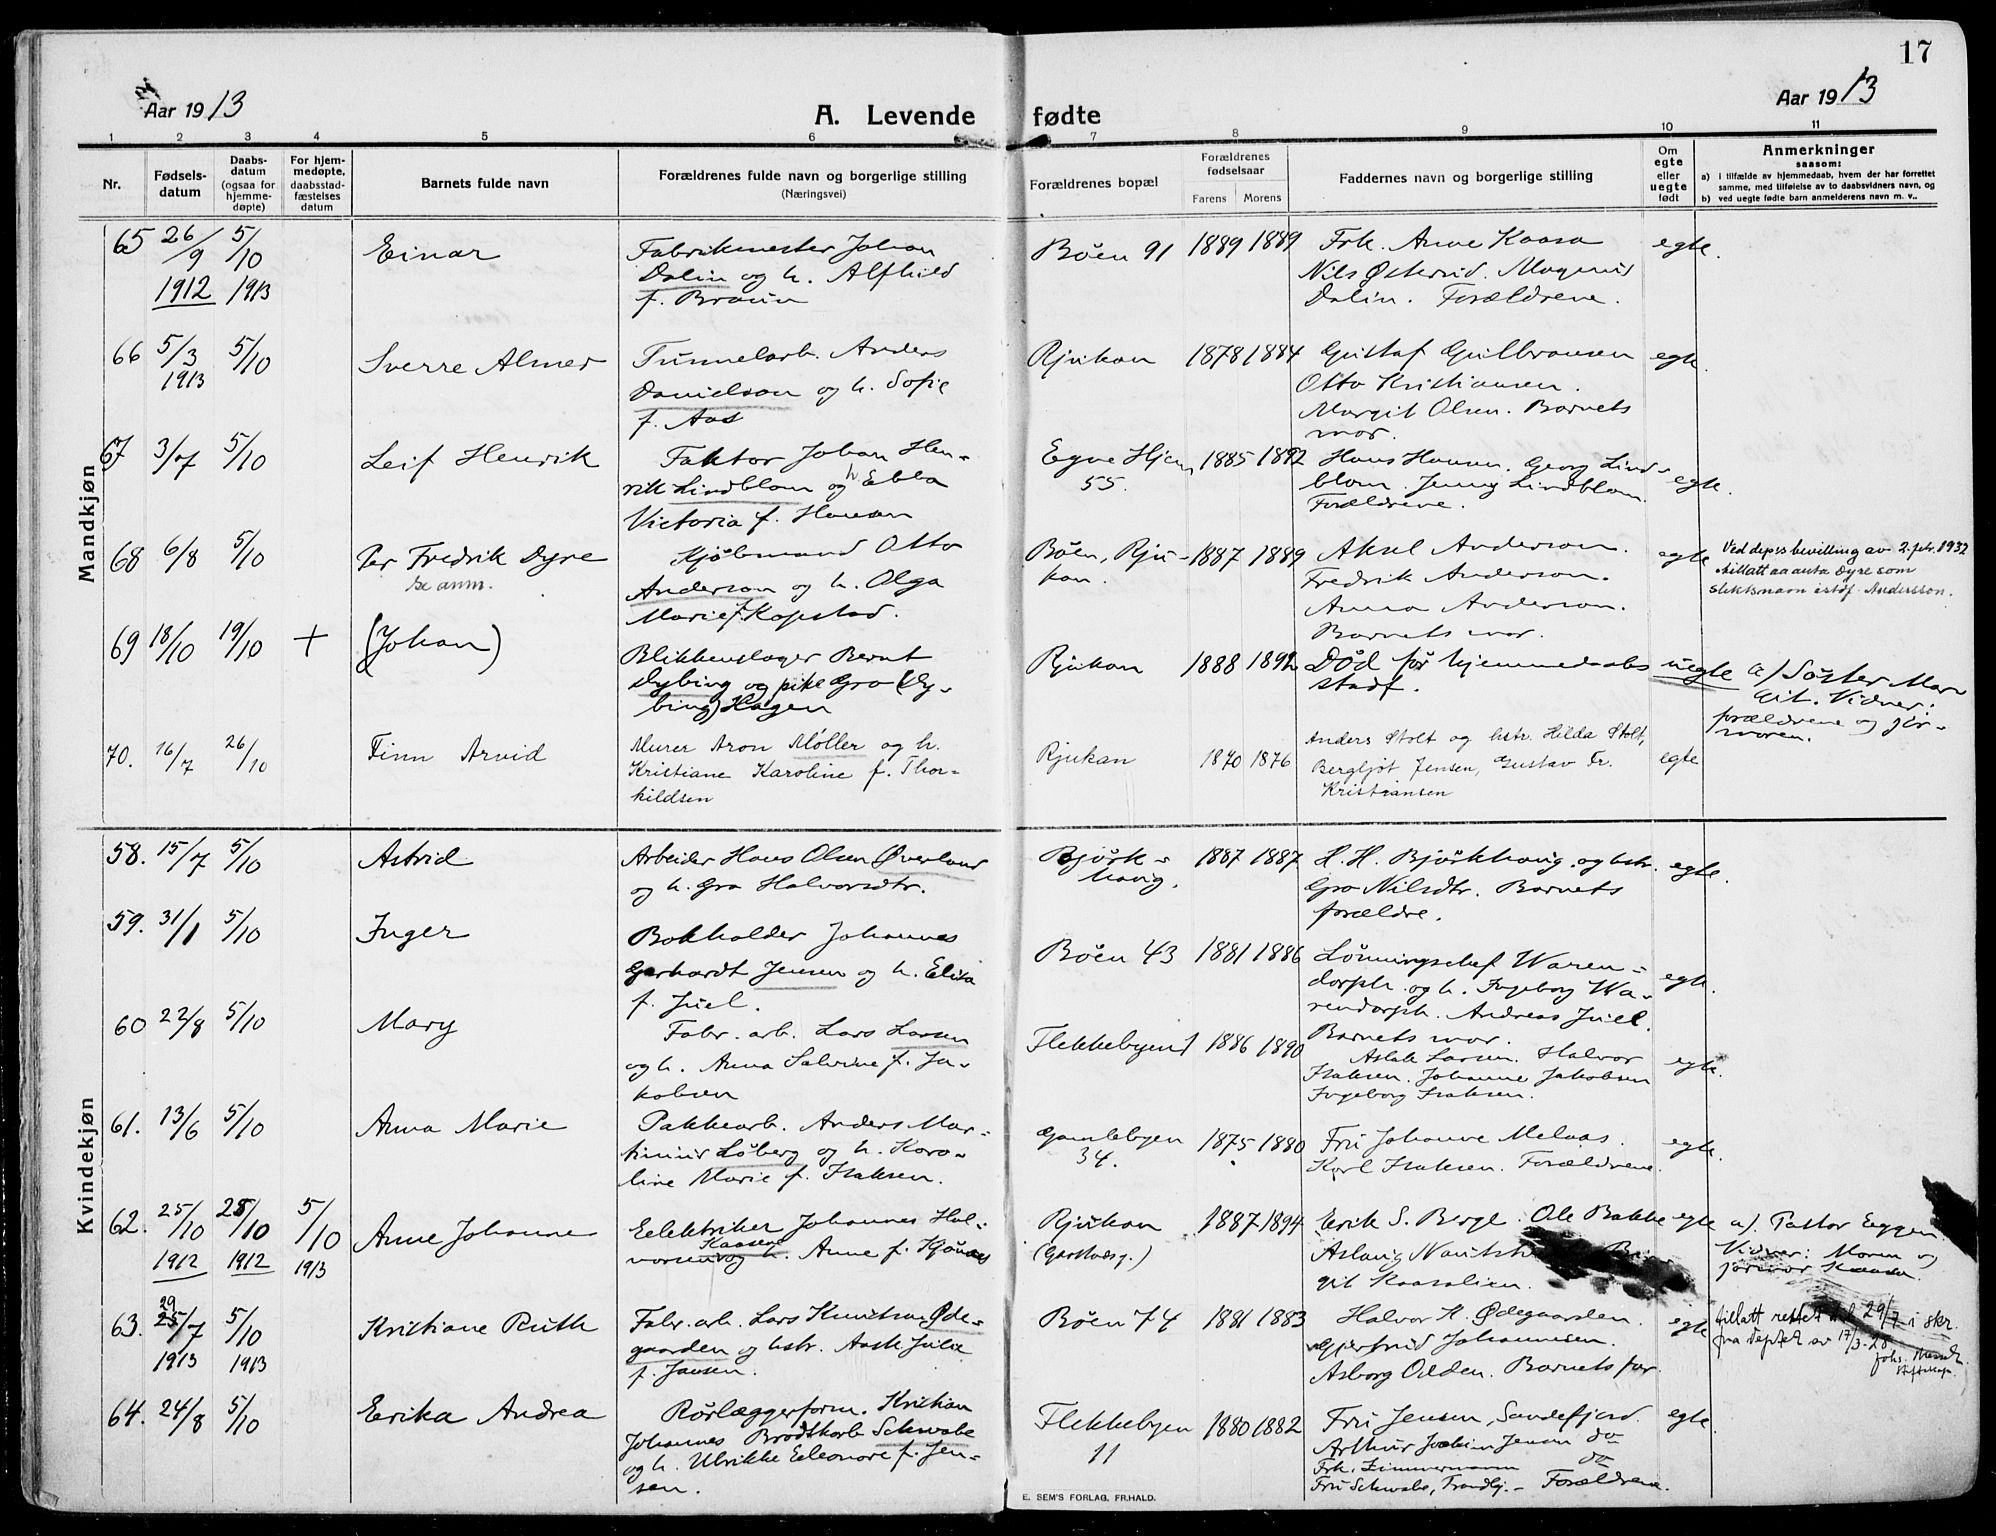 17
Aar 1913
A. Levende fødte
Aar 1913
1 2 3 4 5 6 7 8 9 10 11
Nr.
Fødsels-
datum
Daabs-
datum
(ogsaa for
hjemme-
døpte)
For hjem-
medøpte,
daabsstad-
fæstelses
datum
Barnets fulde navn
Forældrenes fulde navn og borgerlige stilling
(Næringsvei)
Forældrenes bopæl
Forældrenes
fødselsaar
Farens Morens
Faddernes navn og borgerlige stilling
Om
egte
eller
uegte
født
Anmerkninger
saasom:
a) i tilfælde av hjemmedaab, hvem der har forrettet
samme, med tilføielse av to daabsvidners navn, og
b) ved uegte fødte barn anmelderens navn m. v..
Mandkjøn
65 26/9 1912 5/10 1913 Einar
Fabrikmester Johan
Dalin og h. Alfhild
f. Braun
Bøen 91 1889 1889
Frk. Anne Kaasa
Nils Østerud. Magnus
Dalin. Forældrene.
egte.
66 5/3 1913 5/10 Sverre Almer
Tunnelarb. Anders
Danielson og h. Sofie
f. Aas
Rjukan 1878 1884
Gustaf Gulbransen
Otto Kristiansen.
Margit Olsen. Barnets
mor.
egte.
67 3/7 5/10 Leif Henrik
Faktor Johan Hen-
rik Lindblom og h. Ebba
Victoria f. Hansen
Egne Hjem
55.
1885 1892
Hans Hansen. Georg Lind-
blom. Jenny Lindblom.
Forældrene.
egte.
68 6/8 5/10 Per Fredrik Dyre
se anm.
Kjøbmand Otto
Anderson og h. Olga
Marie f. Kopstad.
Bøen, Rju-
kan.
1887 1889
Aksel Anderson.
Fredrik Anderson.
Anna Anderson.
Barnets mor.
egte
Ved deps bevilling av 2. febr. 1932
tillatt aa anta Dyre som
slektsnavn istdf. Andersson.
69 18/10 19/10 + (Johan)
Blikkenslager Bernt
Dybing og pike Gro (Dy-
bing) Hagen
Rjukan 1888 1892
Død før hjemmedaabs
stadf.
uegte
a) Søster Mar-
git. Vidner:
forældrene og jor-
moren.
70. 16/7 26/10 Finn Arvid
Murer Aron Møller og h.
Kristiane Karoline f. Thor-
kildsen
Rjukan 1870 1876
Anders Stolt og hstr. Hilda Stolt,
Bergljot Jensen, Gustav Fr.
Kristiansen
egte
Kvindekjøn
58. 15/7 5/10 Astrid
Arbeider Hans Olsen Øverland
og h. Gro Halvorsdtr.
Bjørk-
havig.
1887 1887
H. H. Bjørkhavig. og hstr.
Gro Nilsdtr. Barnets
forældre.
egte.
59. 31/1 5/10 Inger
Bokholder Johannes
Gerhardt Jensen og h. Elisa
f. Juel.
Bøen 43 1881 1886
Lønningschef Waren-
dorph og h. Ingeborg Wa-
rendorph. Andreas Juel.
Barnets mor.
egte.
60 22/8 5/10 Mary
Fabr. arb. Lars Larsen
og h. Anna Salvine f. Ja-
kobsen
Flekkebyen 1 1886 1890
Aslak Larsen. Halvor
Isaksen. Johanne Jakobsen
Ingeborg Isaksen.
egte.
61. 13/6 5/10 Anna Marie
Pakkearb. Anders Mar-
kinus Løberg og h. Karo-
line Marie f. Isaksen.
Gamlebyen
34.
1875 1880
Fru Johanne Melaas.
Karl Isaksen. Forældrene.
egte.
62. 25/10 1912 28/10 1912 5/10 1913 Anne Johanne
Eelektriker Johannes Hal-
vorsen Kaasen og h. Anne f.
Rjukan 1887 1894
Erik S. Berge. Ole Bakke
Aslaug
git Kaasalien.
egte
a). Pastor Eggen.
Vidner: Moren og
jormor Kaasa.
63. 29/7 1913 5/10 1913 Kristiane Ruth
Fabr. arb. Lars Knutson Øde-
gaarden og hstr. Aase Julie
f. Jansen.
Bøen 74 1881 1883
Halvor K. Ødegaarden.
Gjertrud Johannesen.
Asborg Odden. Barnets far.
egte
tillatt rettet til 29/7 i skr.
fra deptet av 17/3-28
64. 24/8 5/10 Erika Andrea
Rørlæggerform. Kristian
Johannes Brodtkorb Schwabe
og h. Ulrikke Eleonore f. Jen-
sen.
Flekkebyen
11
1880 1882
Fru Jensen, Sandefjord.
Arthur Joakim Jensen do
Frk. Zimmermann do
Fru Schwabe, Trondhj. - Forældrene.
egte.
E. SEM'S FORLAG, FR.HALD.